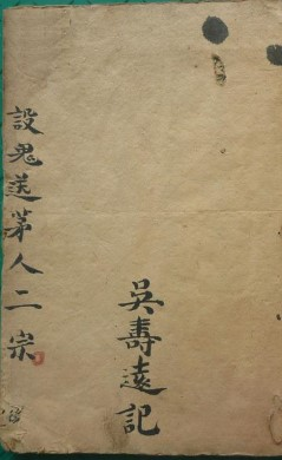 設鬼送茅人二宗
吳壽遠記